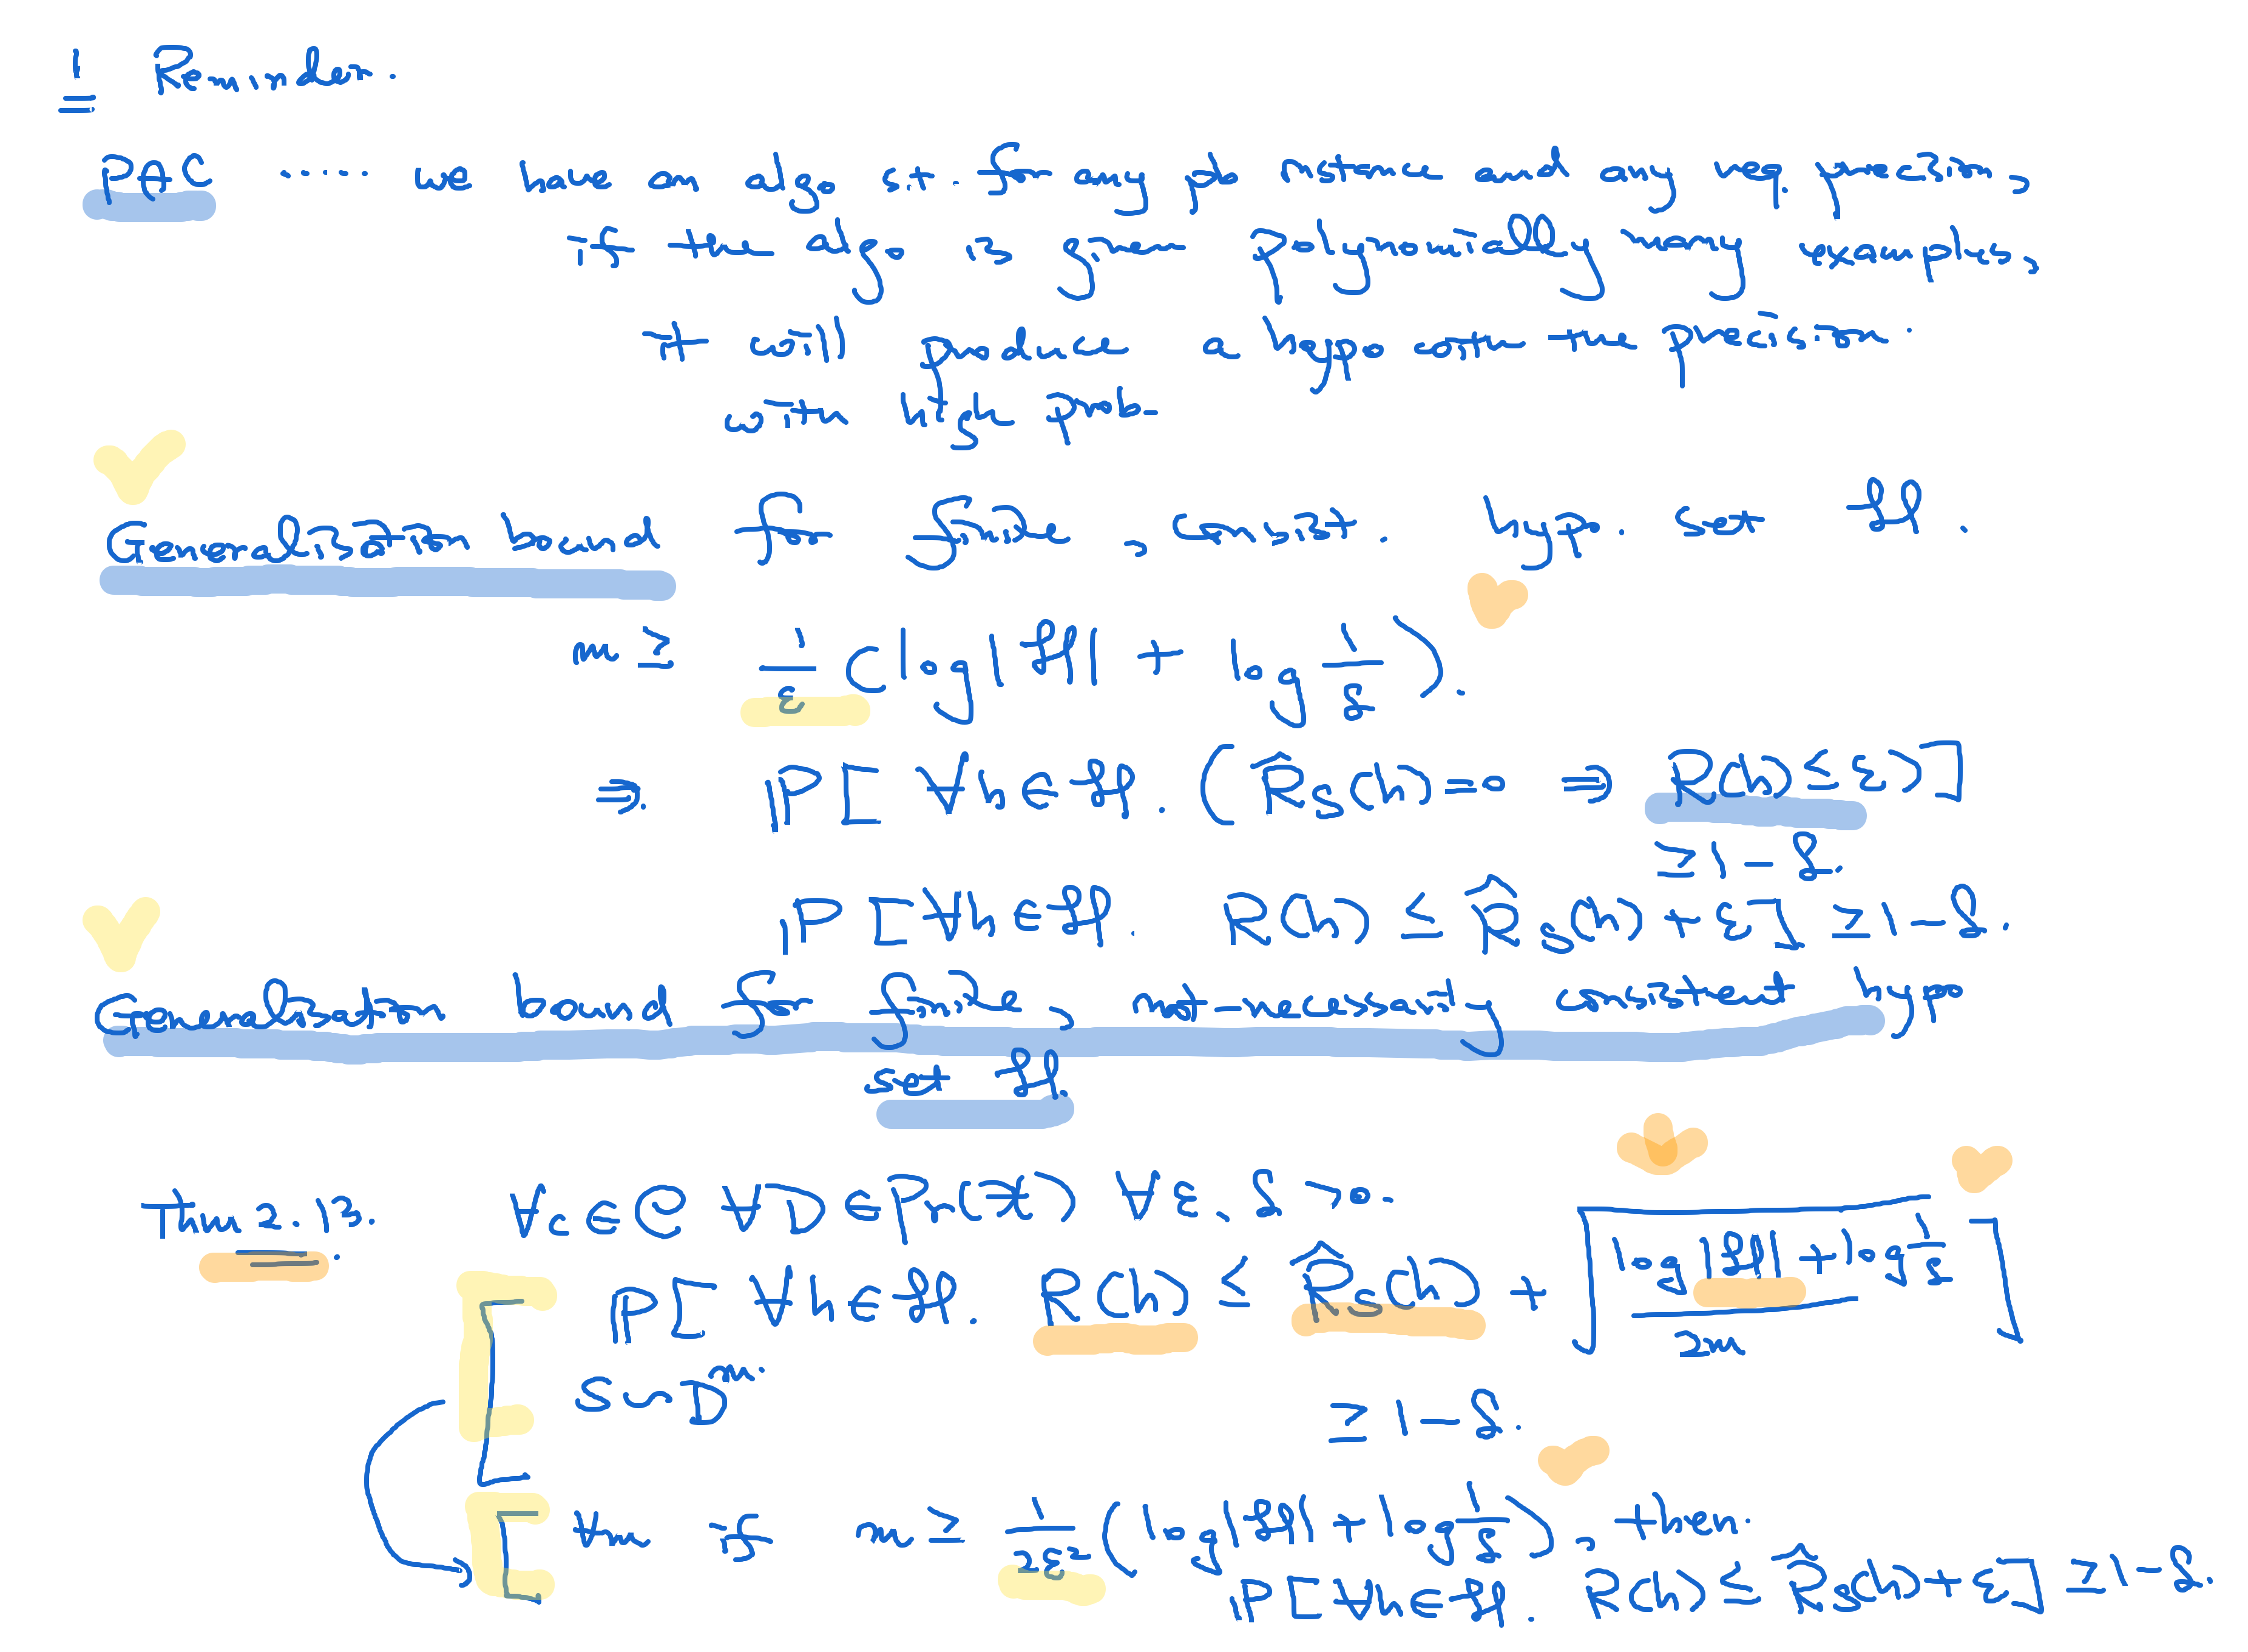 1 Reminder.
PAC ..... we have an algo s.t. for any pb instance and any req. precision,
if the algo is given polynomially many examples,
it will produce a hypo with the precision.
with high prob.
Generalisation bound for finite, consist. hyp. set ℋ.
m ≥ 1/ε (log|ℋ| + log 1/δ).
⇒ P[∀h∈ℋ. (R̂_S(h)=0 ⇒ R(h)≤ε)]
≥1-δ.
P[∀h∈ℋ. R(h) ≤ R̂_S(h)+ε] ≥1-δ.
Generalisation bound for finite, not-necessarily consistent hypo
set ℋ.
Thm 2.13. ∀c∈C ∀D∈Pr(X) ∀ε,δ>0.
P[∀h∈ℋ. R(h) ≤ R̂_S(h) + √((log|ℋ|+log 1/δ)/2m)]
S~D^m.
≥1-δ.
∀m if m ≥ 1/2ε² (log|ℋ|+log 1/δ), then.
P[∀h∈ℋ. R(h) ≤ R̂_S(h)+ε] ≥1-δ.